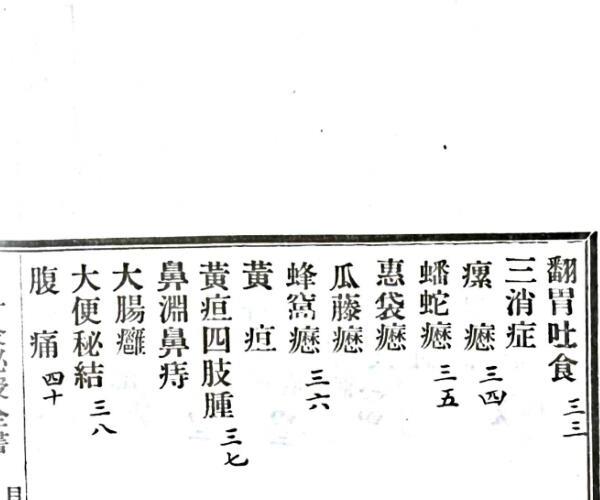 翻胃吐食 三三
三消症
瘰癧 三四
蟠蛇癧 三五
惠袋癧
瓜藤癧
蜂窩癧 三六
黃疸
黃疸四肢腫 三七
鼻淵鼻痔
大腸癰
大便秘結 三八
腹痛 四十
全書
目